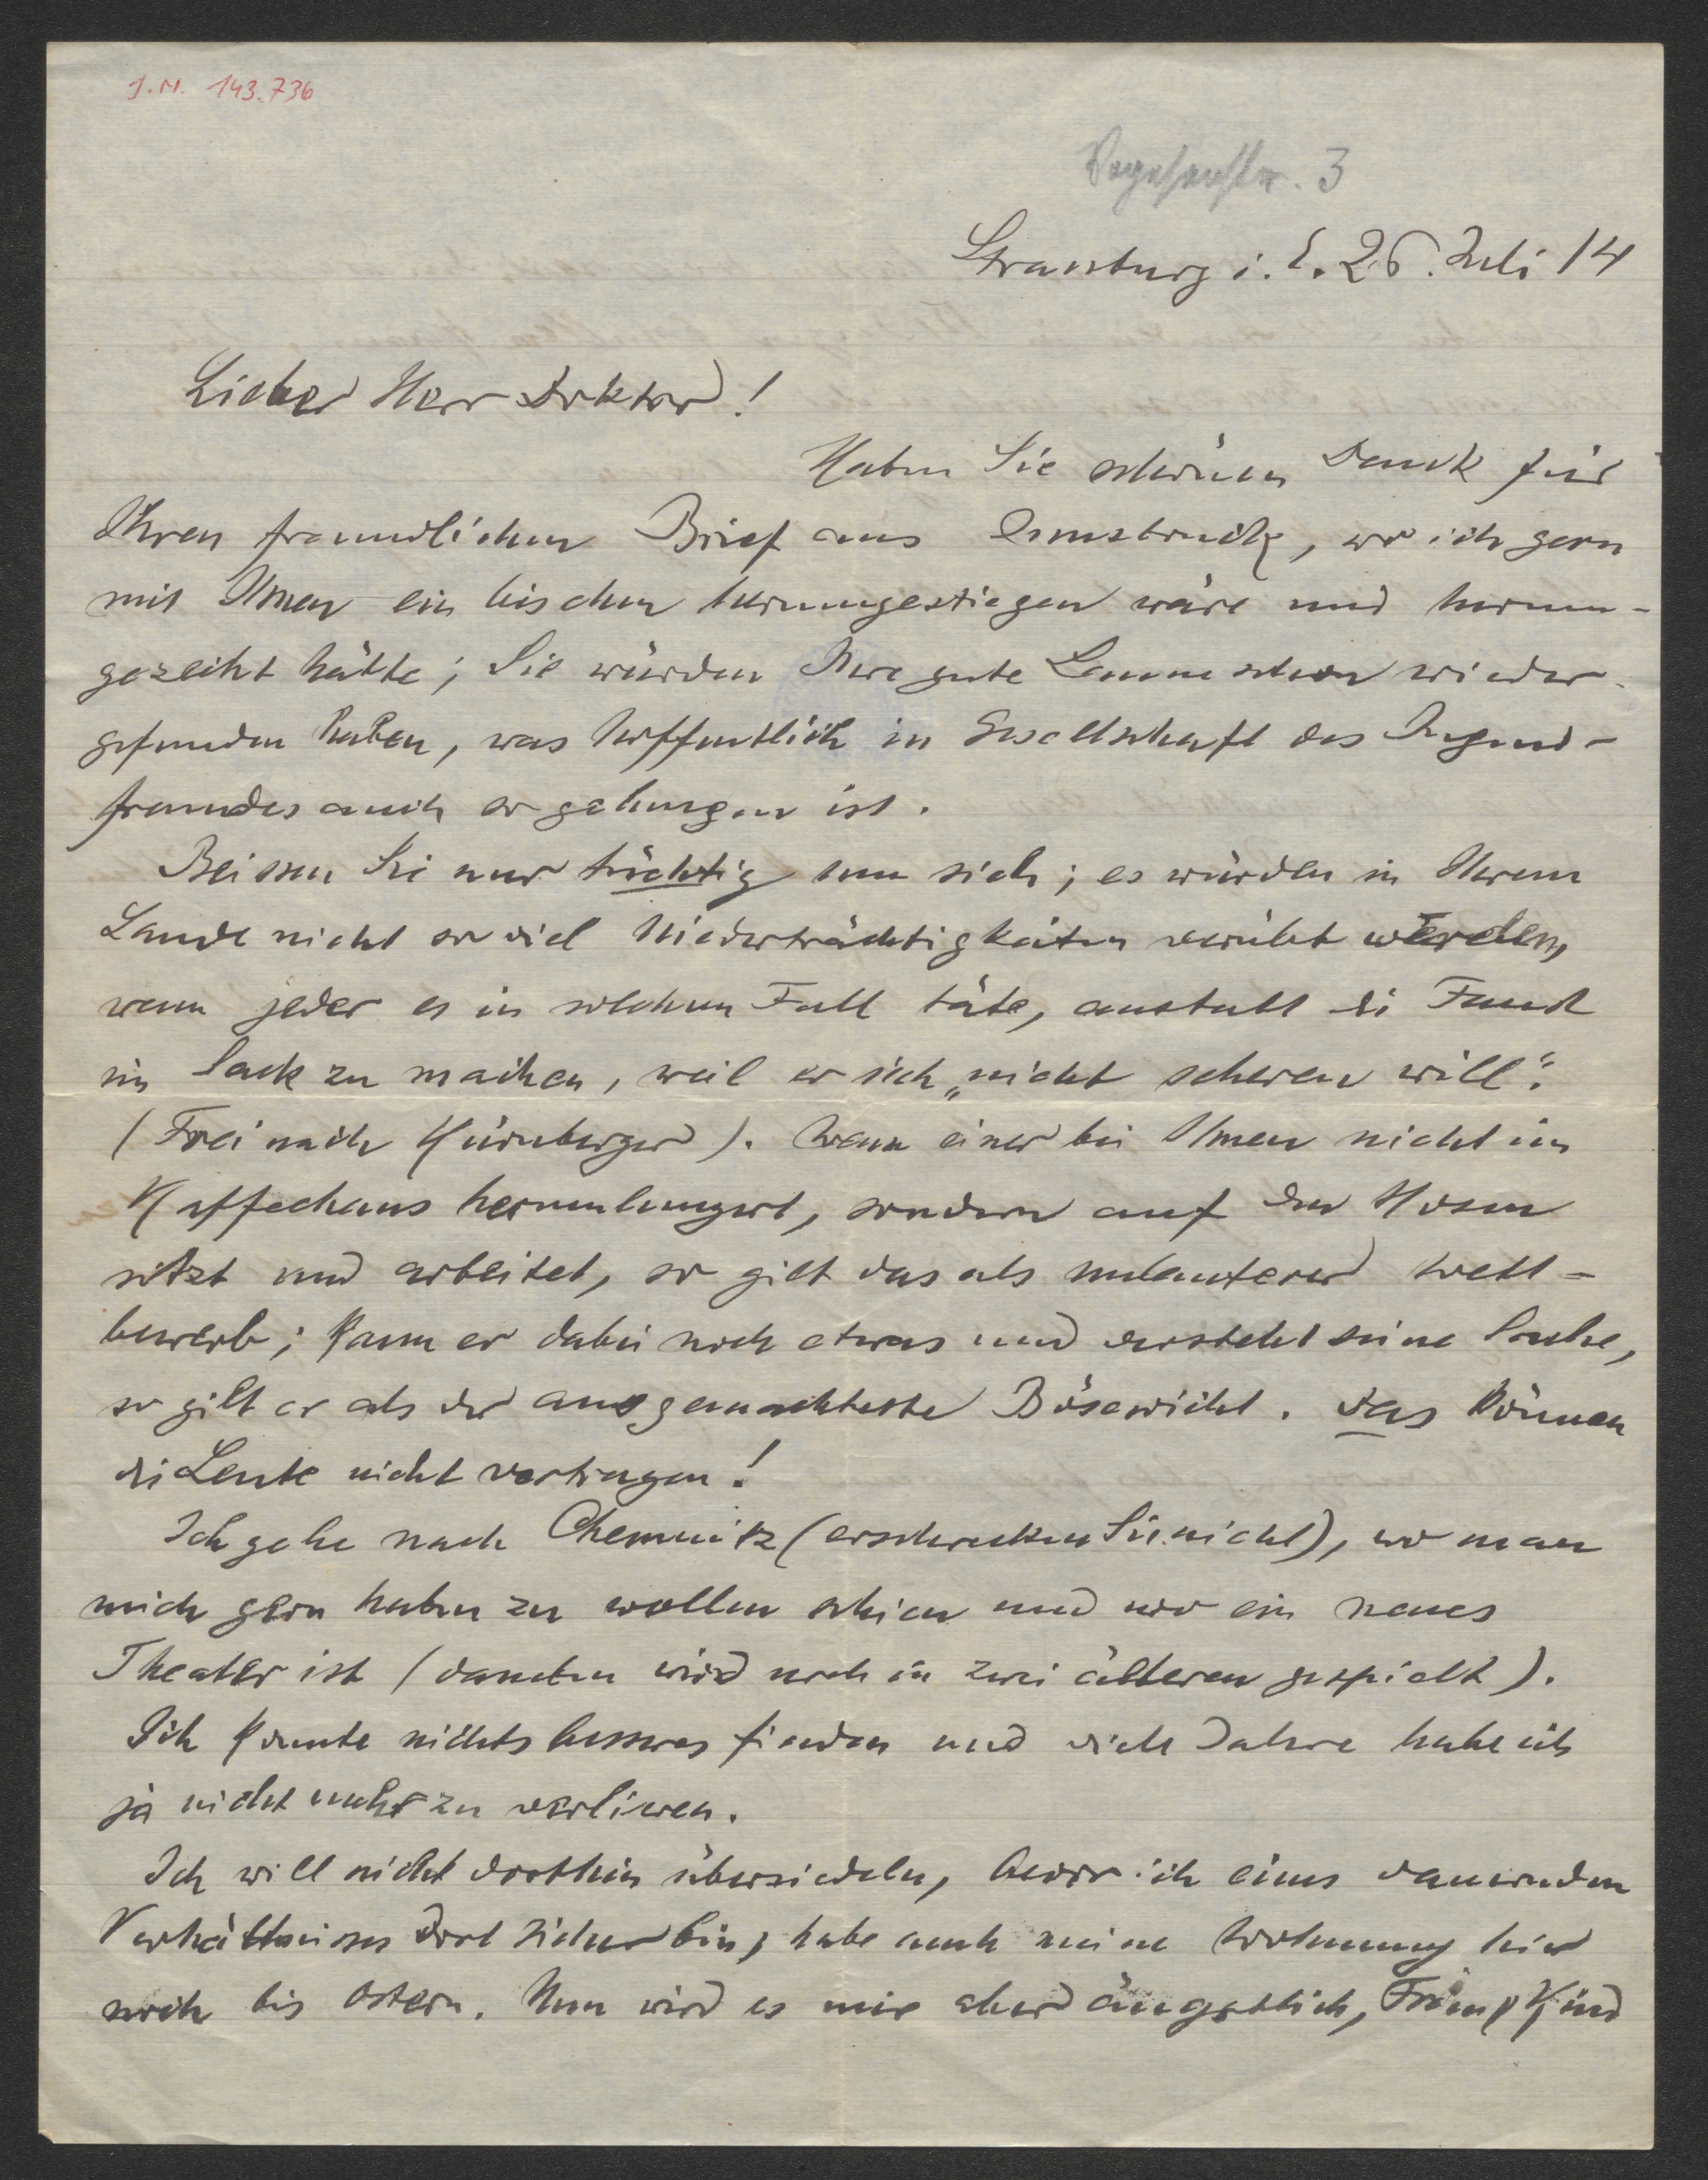 J.N. 143.736
Vogesenstr. 3
Strassburg i. E. 26. Juli 14
Lieber Herr Doktor!
Haben Sie schönen Dank für
Ihren freundlichen Brief aus Innsbruck, wo ich gern
mit Ihnen ein bischen herumgestiegen wäre und herum-
gezecht hätte; Sie würden Ihre gute Laune schon wieder-
gefunden haben, was hoffentlich in Gesellschaft des Jugend-
freundes auch so gelungen ist.
Beissen Sie nur tüchtig um sich; es würden in Ihrem
Lande nicht so viel Niederträchtigkeiten verübt werden,
wenn jeder es in solchem Fall täte, anstatt die Faust
im Sack zu machen, weil er sich „nicht scheren will“.
(Frei nach Kürnberger). Wenn einer bei Ihnen nicht im
Kaffeehaus herumlungert, sondern auf den Hosen
sitzt und arbeitet, so gilt das als unlauterer Wett-
bewerb; kann er dabei noch etwas und versteht seine Sache,
so gilt er als der ausgemachteste Bösewicht. Das können
die Leute nicht vertragen!
Ich gehe nach Chemnitz (erschrecken Sie nicht), wo man
mich gern haben zu wollen schien und wo ein neues
Theater ist (daneben wird noch in zwei älteren gespielt).
Ich konnte nichts besseres finden und viele Jahre habe ich
ja nicht mehr zu verlieren.
Ich will nicht dorthin übersiedeln, bevor ich eines dauernden
Verhältnisses dort sicher bin; habe auch meine Wohnung hier
noch bis Ostern. Nun wird es mir aber ängstlich, Kind